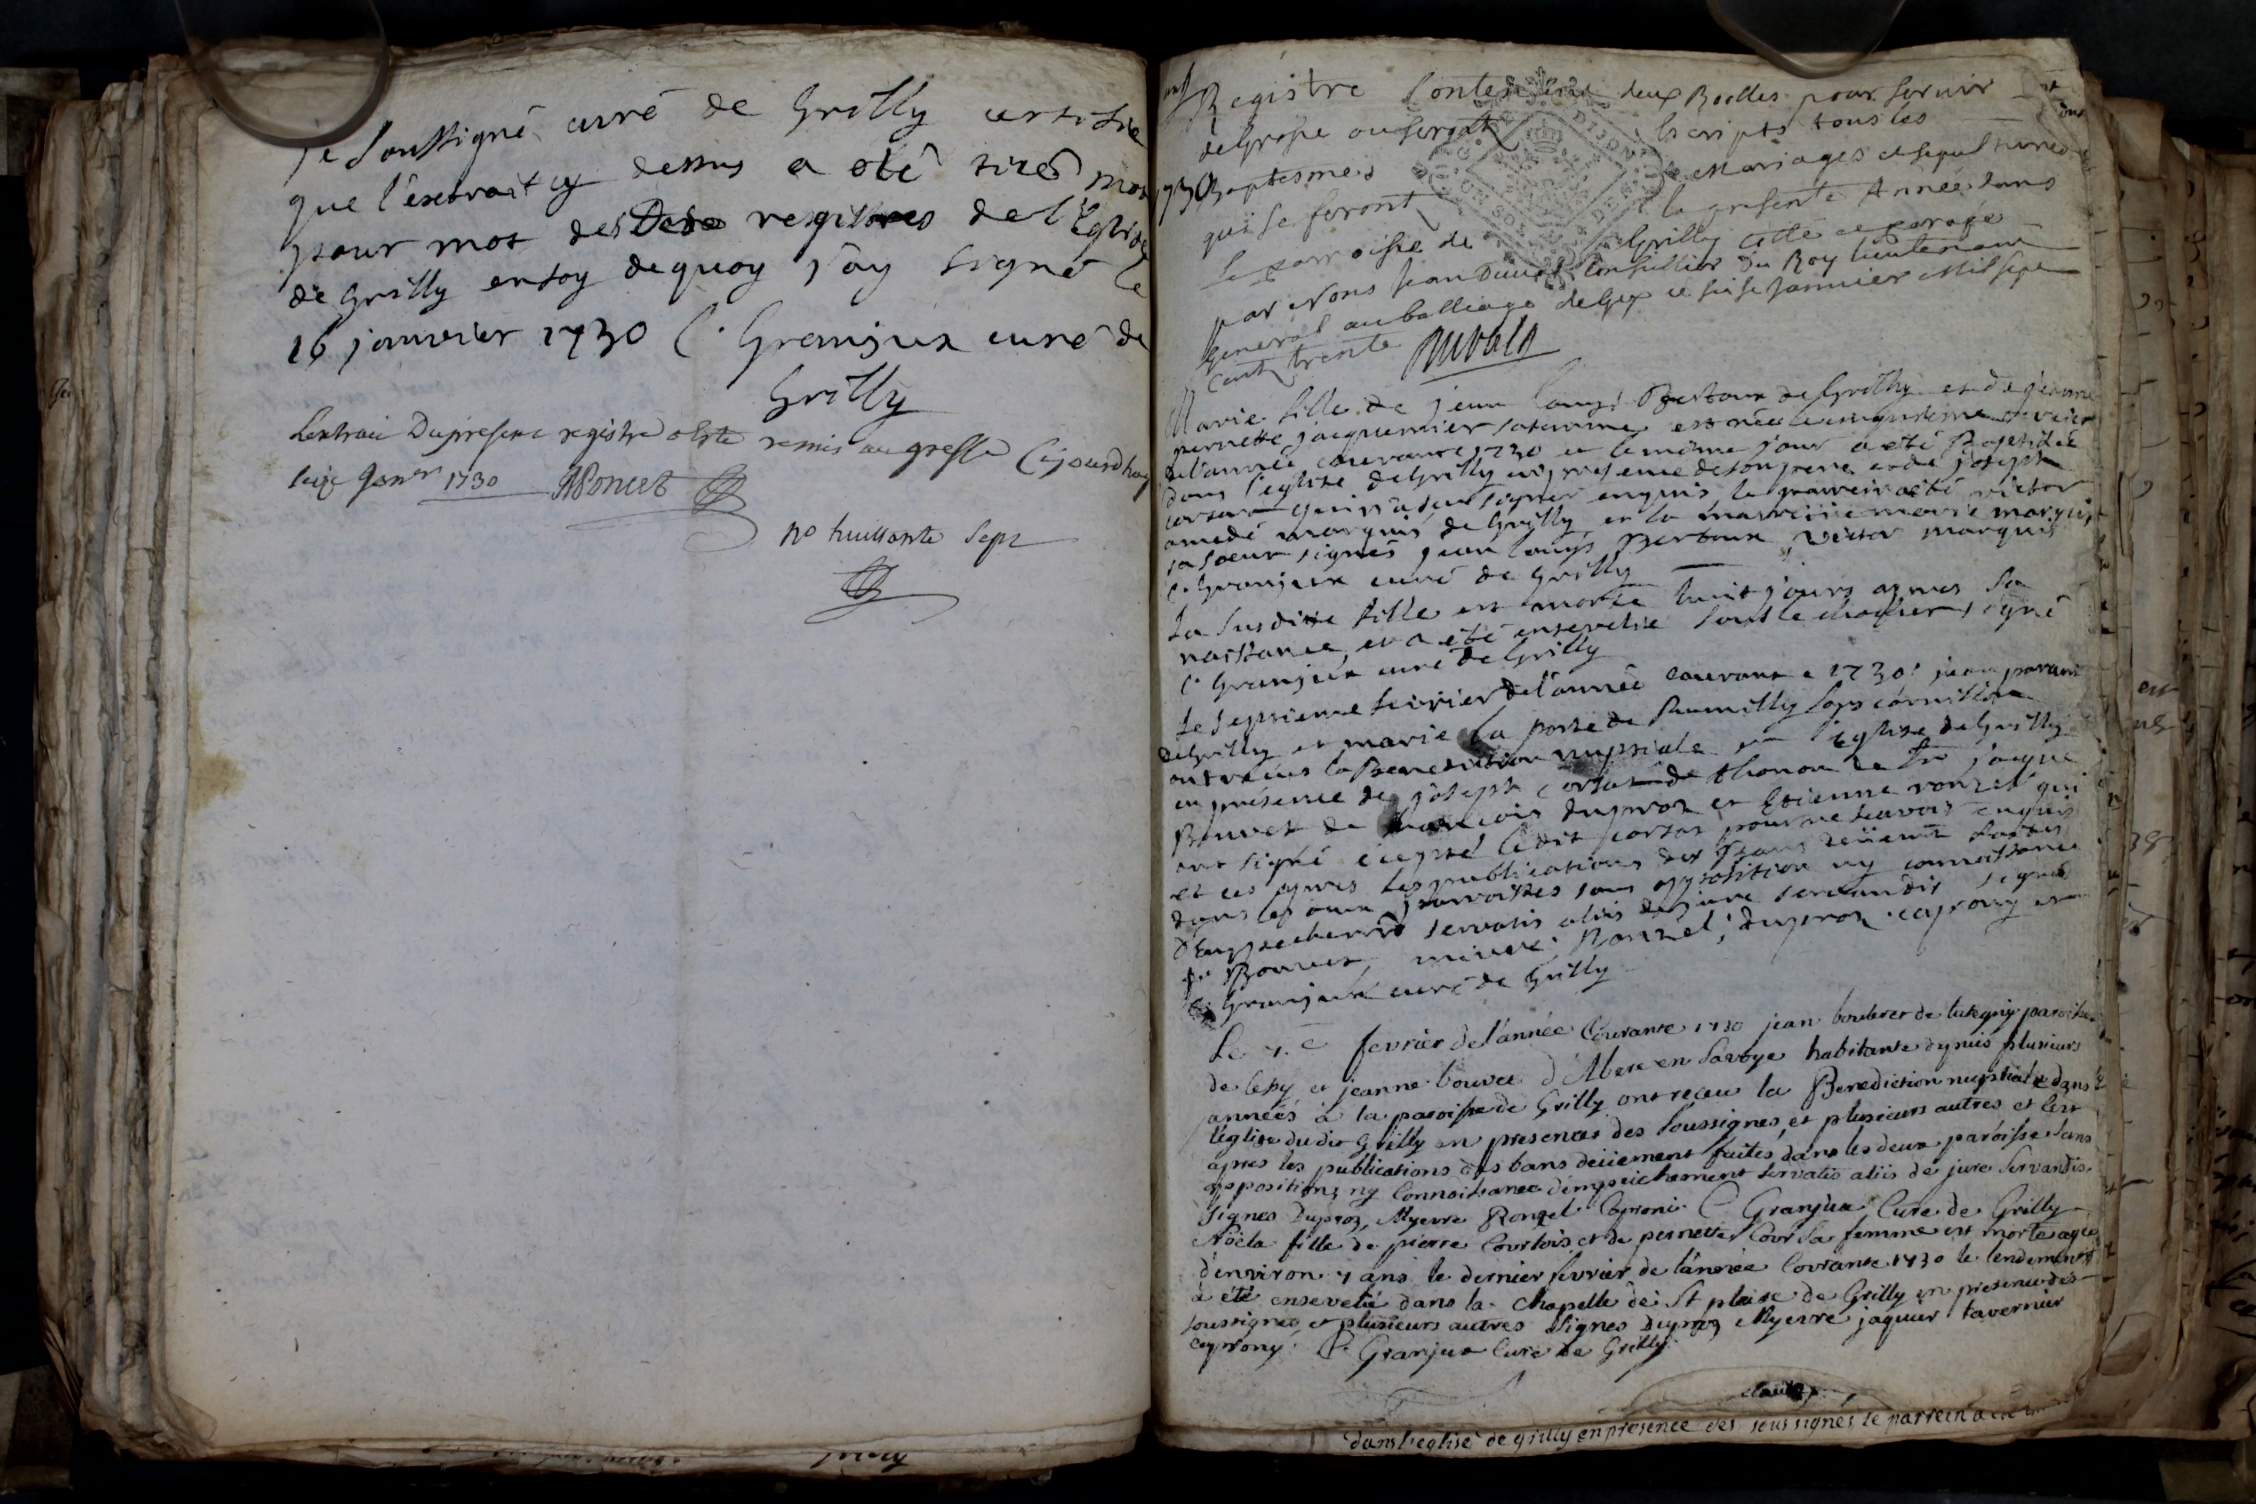 je soussigné curé de Grilly certifie
que l'extrait cy dessus a eté tiré mot
pour mot des registres de l'Eglise
de Grilly en foy de quoy j'ay signé le
16 janvier 1730 C. Granjux curé de
Grilly
Lextrait Du present registre a Este remis au greffe Cejourdhuy
seize Janer 1730 APoncet
no huittante sept
Registre Contenant deux Roelles pour servir
de Grosse ou seront Escripts tous les
1730 Baptesmes Mariages et sepultures
qui se feront la presente Année dans
la parroisse de Grilly Cotté et parafé
par Nous Jean Duval Conseillier Du Roy lieutenant
general au balliage de Gex ce seise Janvier Mil sept
cent trente Duvald
Marie fille de jean louys Bertoux de Grilly et de jeanne
pernette jacquemier sa femme est née le fevrier
de l'année courante 1730 et le même jour a eté Baptisée
dans l'eglise de Grilly en presence de son pere et de joseph
corsat qui n'a sceu signer enquis le parrein a eté victor
amedé marquis de Grilly et la marreine marie marquis
sa soeur signés jean louys Bertoux, victor marquis
C. Granjux curé de Grilly
La susditte fille est morte huit jours apres sa
naissance, et a eté ensevelie sous le clocher signé
C. Granjux curé de Grilly
Le septieme fevrier de l'année courante 1730 jean
de Grilly et marie La porte de Rumilly sous cornillon
ont receus la Benediction nuptiale en l'Eglise de Grilly
en présence de joseph corsat de thonon de jacque
Bouvet de françois duproz et Etienne ronzel qui
ont signé excepté ledit corsat pour ne scavoir enquis
et ces apres les publications des Bans deüement faittes
dans les deux parroisses sans opposition ny connoissance
d'Empechement servatis aliis de jure servandis signés
Bouvet, mievre, Ronzel, duproz, caprony et
C. Granjux curé de Grilly
Le 7.e fevrier de l'année Courante 1730 jean de paroisse
de Cessy et jeanne bouvet d'Abere en Savoye habitante depuis plusieurs
années à la paroisse de Grilly ont receu la Benediction nuptiale dans
l'église dudit Grilly en presences des soussignes, et plusieurs autres et cest
apres les publications des bans deüement faites dans les deux paroisse sans
oppositions ny Connoissance d'empeichement servatis aliis de jure servandis.
signes Duproz, Myevre Ronzel Caproni C Granjux Cure de Grilly
Noëla fille de pierre Courtois et de pernette Cour sa femme est morte agée
d'environ 7 ans le dernier fevrier de l'année Courante 1730 le lendemain
à été ensevelie dans la Chapelle de St plaise de Grilly en presence des
soussignes et plusieurs autres signes Duproz Myevre jaquier tavernier
caprony. C. Granjux Cure de Grilly.
claude
dans l'eglise de grilly en presence des soussignés le parrein a eté